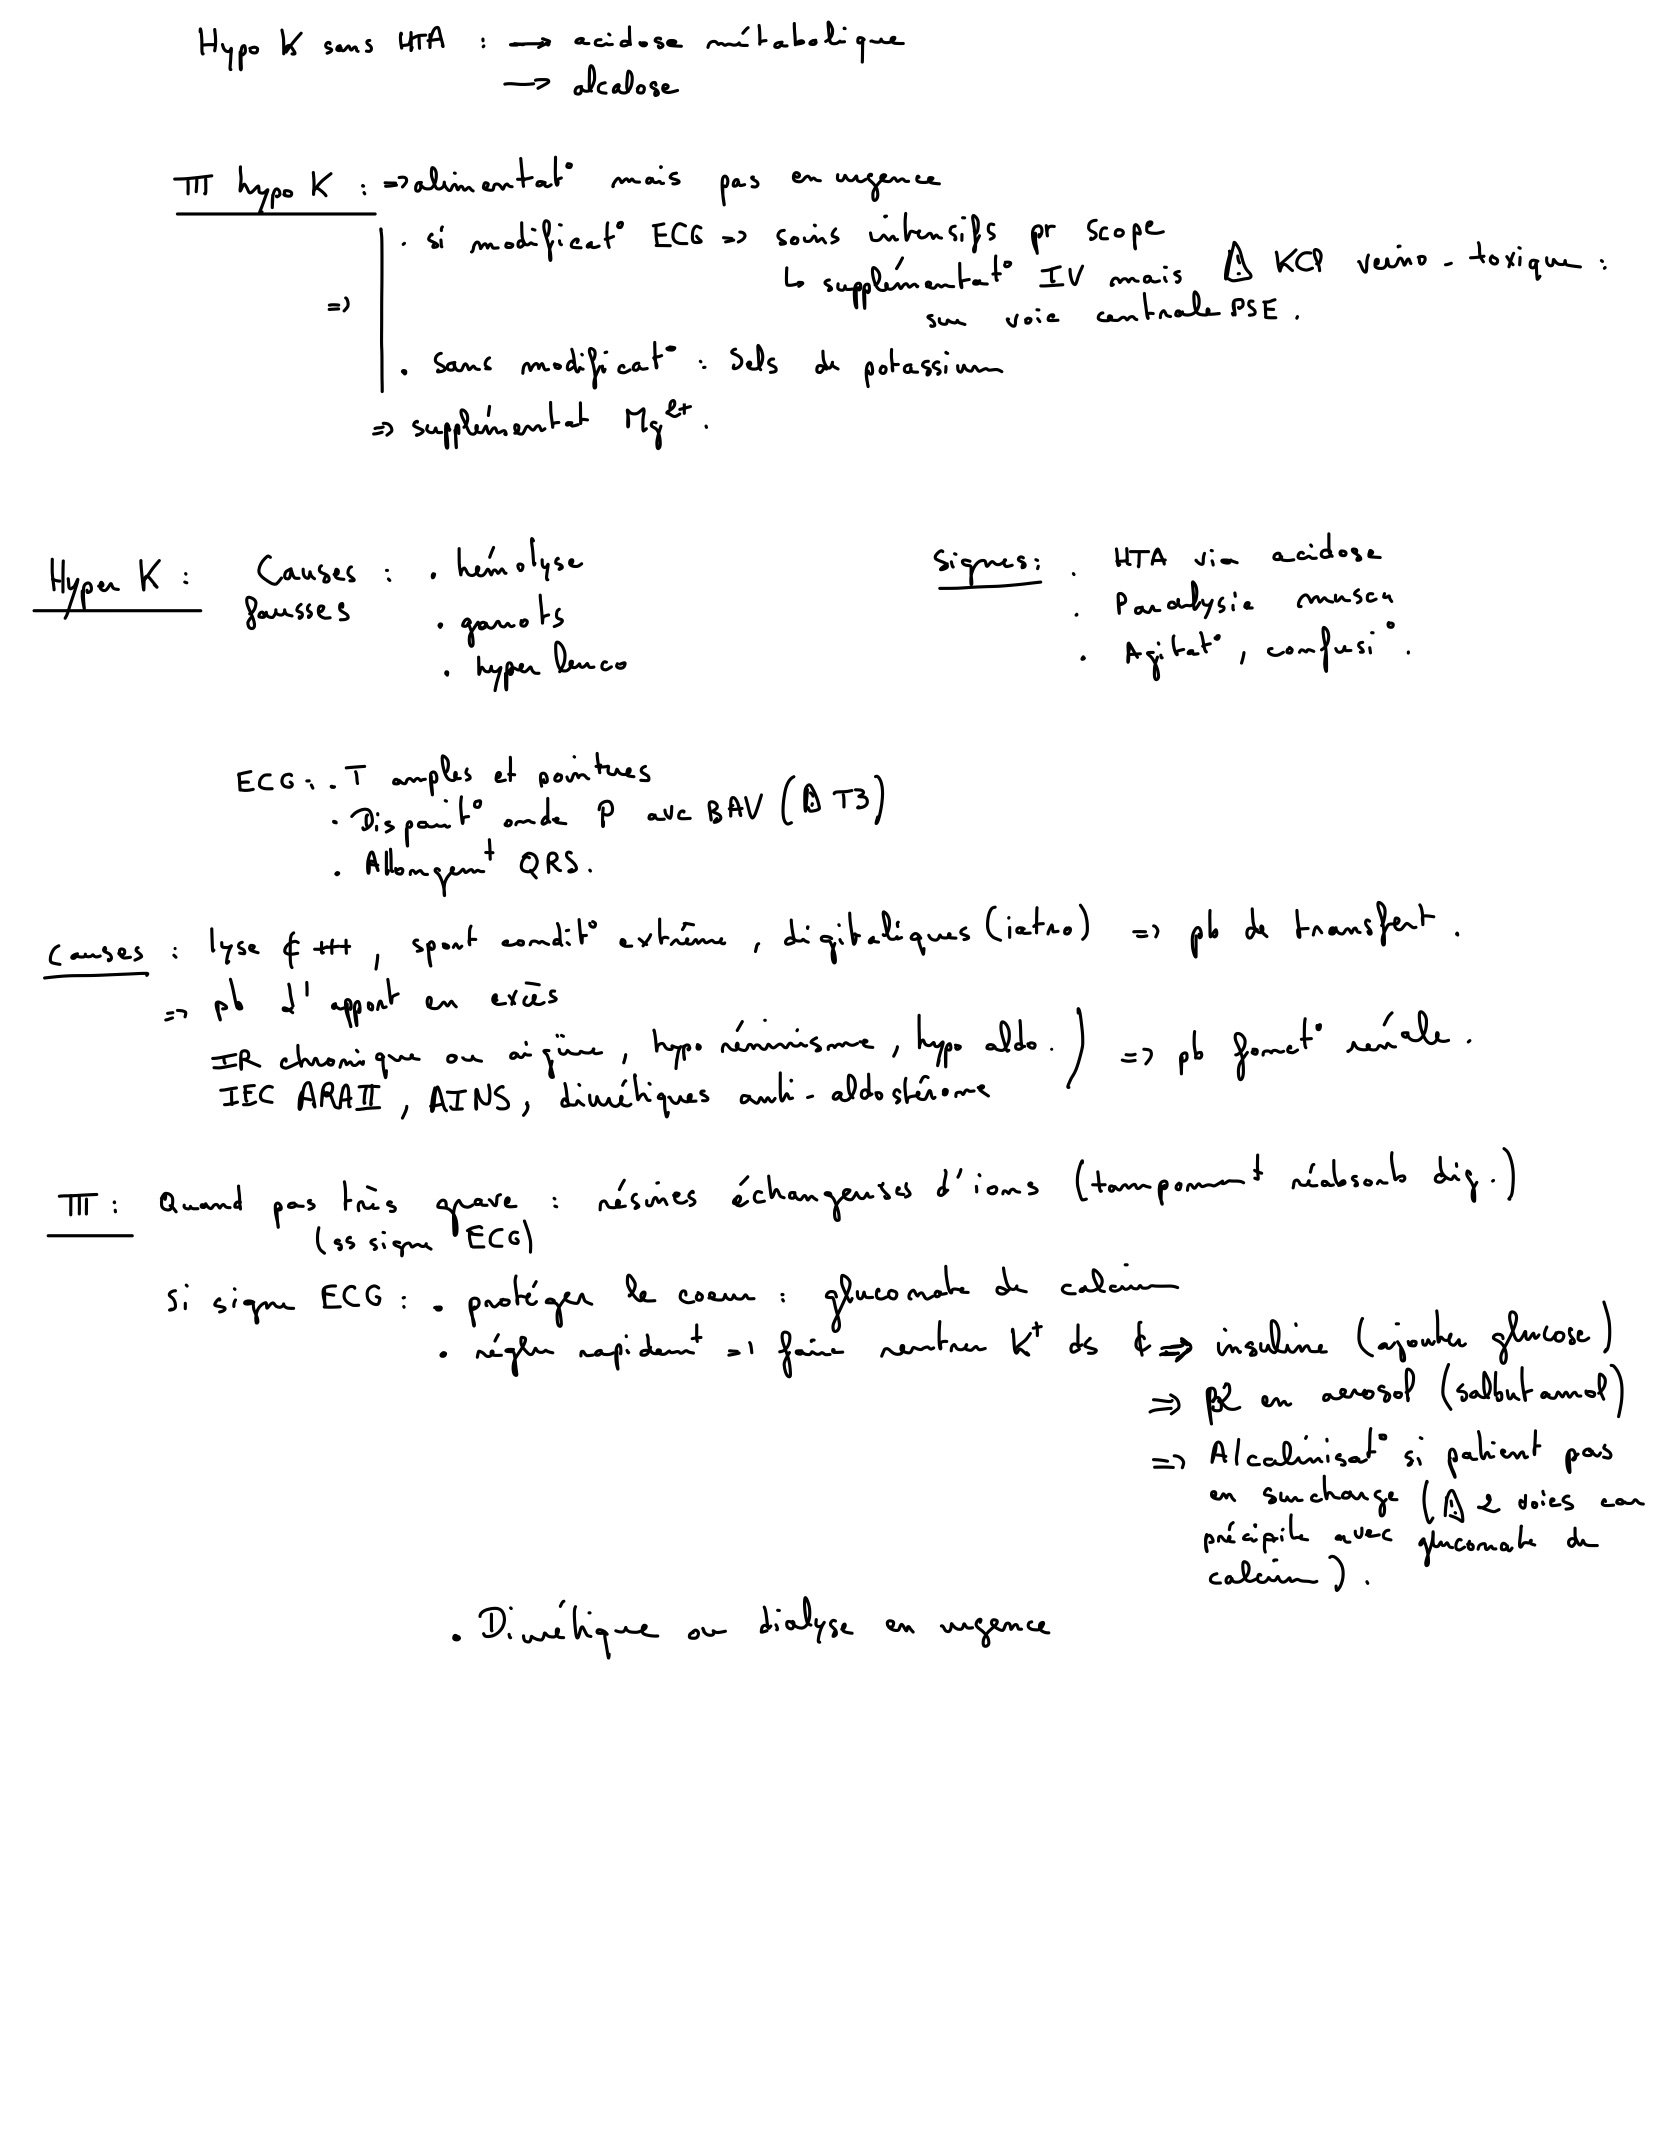 Hypo K sans HTA : → acidose métabolique
→ alcalose
TTT hypo K : => alimentat° mais pas en urgence
. si modificat° ECG => soins intensifs pr scope
↳ supplémentat° IV mais ⚠ KCl veino-toxique :
=> sur voie centrale PSE.
. Sans modificat° : Sels de potassium
=> supplémentat Mg2+.
Hyper K : Causes : . hémolyse
fausses . garrots
. hyper leuco
Signes: . HTA via acidose
. Paralysie muscu
. Agitat°, confusi°.
ECG: . T amples et pointues
. Disparit° onde P avc BAV (⚠ T3)
. Allongemt QRS.
Causes : lyse ¢ +++, sport condit° extrême, digitaliques (iatro) => pb de transfert.
=> pb d'apport en excès
IR chronique ou aigüe, hypo réninisme, hypo aldo. ) => pb fonct° rénale.
IEC ARAII, AINS, diurétiques anti-aldostérone
TTT : Quand pas très grave : résines échangeuses d'ions (tamponnmt réabsorb dig.)
(ss signe ECG)
Si signe ECG : . protéger le coeur : gluconate de calcium
. régler rapidemt => faire rentrer K+ ds ¢ => insuline (ajouter glucose)
=> β2 en aerosol (salbutamol)
=> Alcalinisat° si patient pas
en surcharge (⚠ 2 voies car
précipite avec gluconate de
calcium).
. Diurétique ou dialyse en urgence